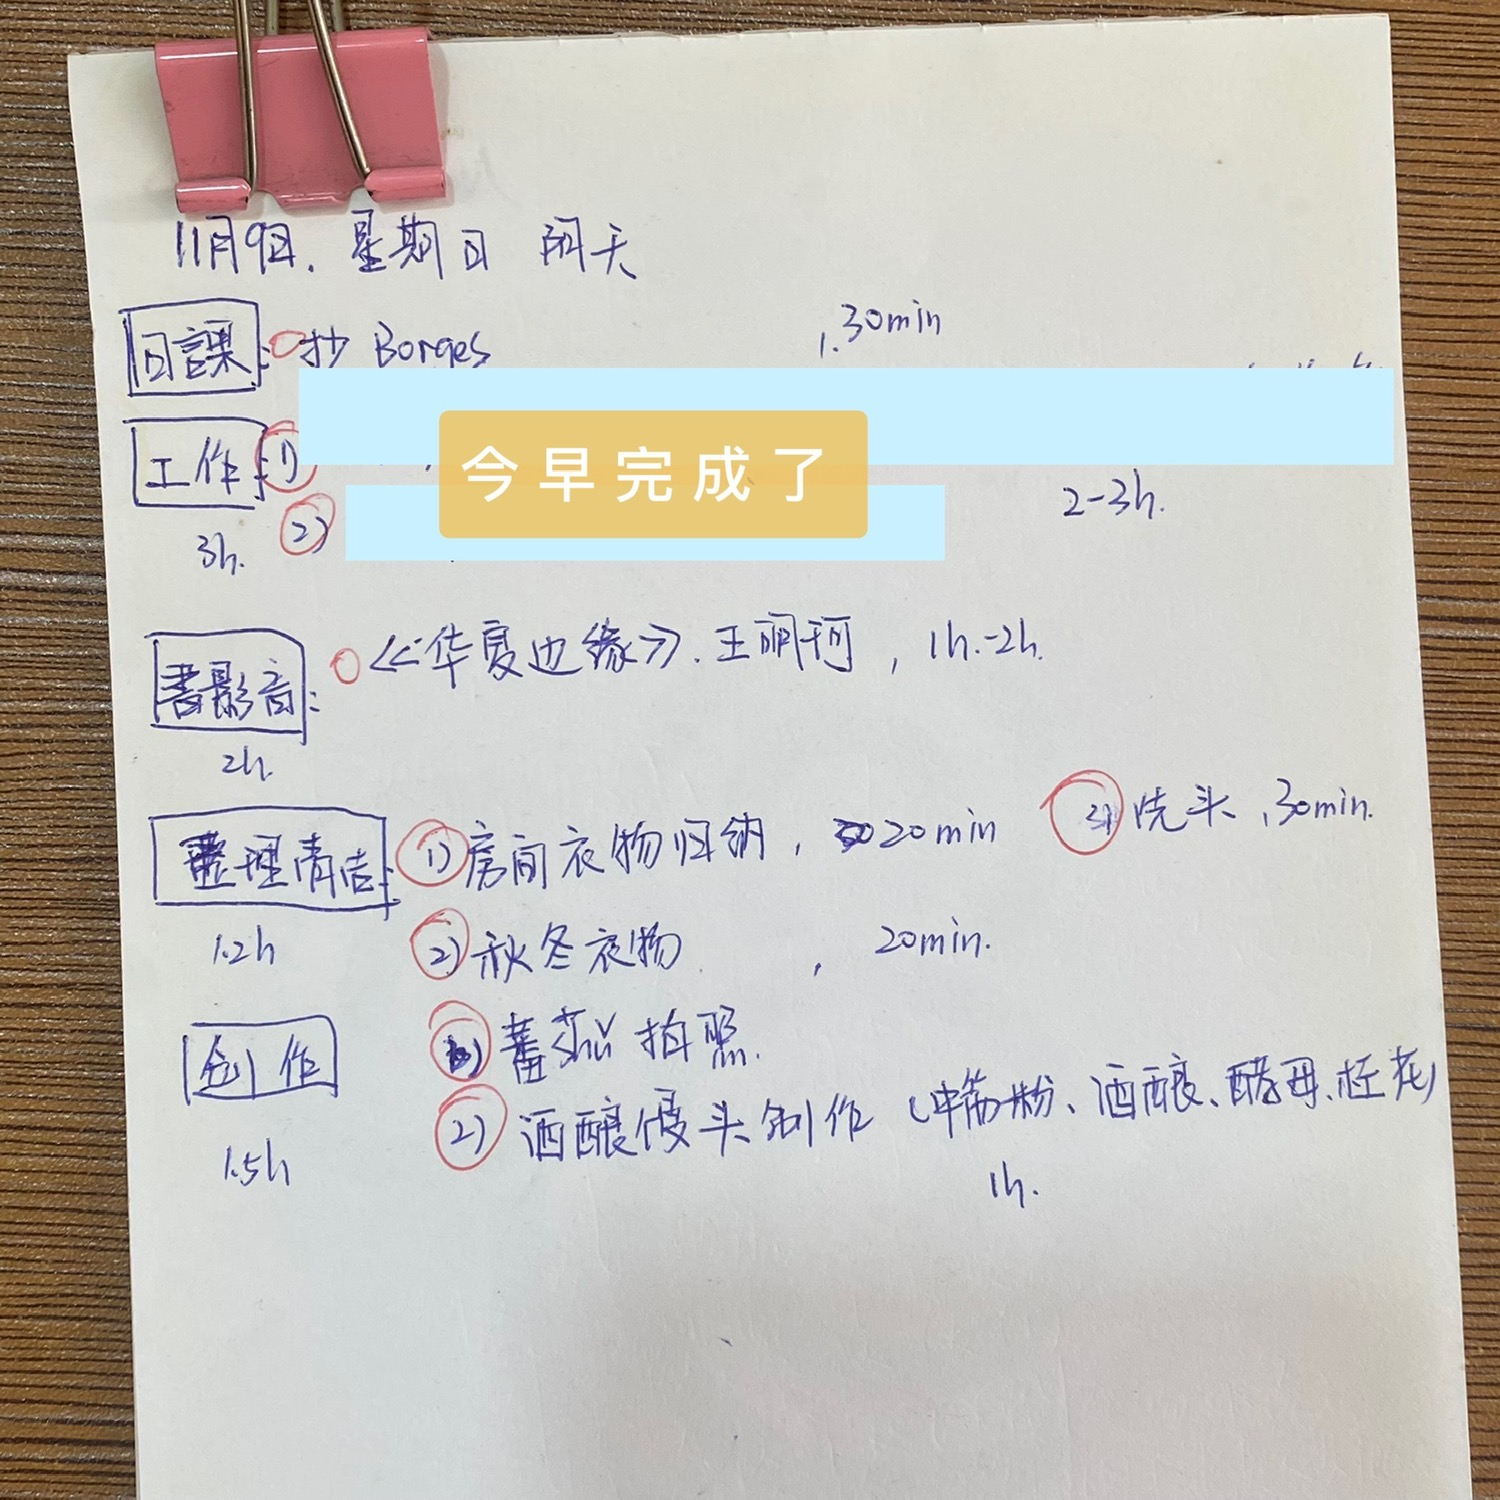 11月9日. 星期日 阴天
日課: 抄 Borges , 30min
今早完成了
工作: 1)
2) 2-3h.
3h.
書影音: 《华夏边缘》. 王明珂 , 1h.-2h.
2h.
整理清洁: 1) 房间衣物归纳 , 20min 3) 洗头 , 30min.
1.2h 2) 秋冬衣物 , 20min.
创作 1) 拍照.
2) 酒酿馒头制作 (中筋粉、酒酿、酵母、桂花)
1.5h 1h.